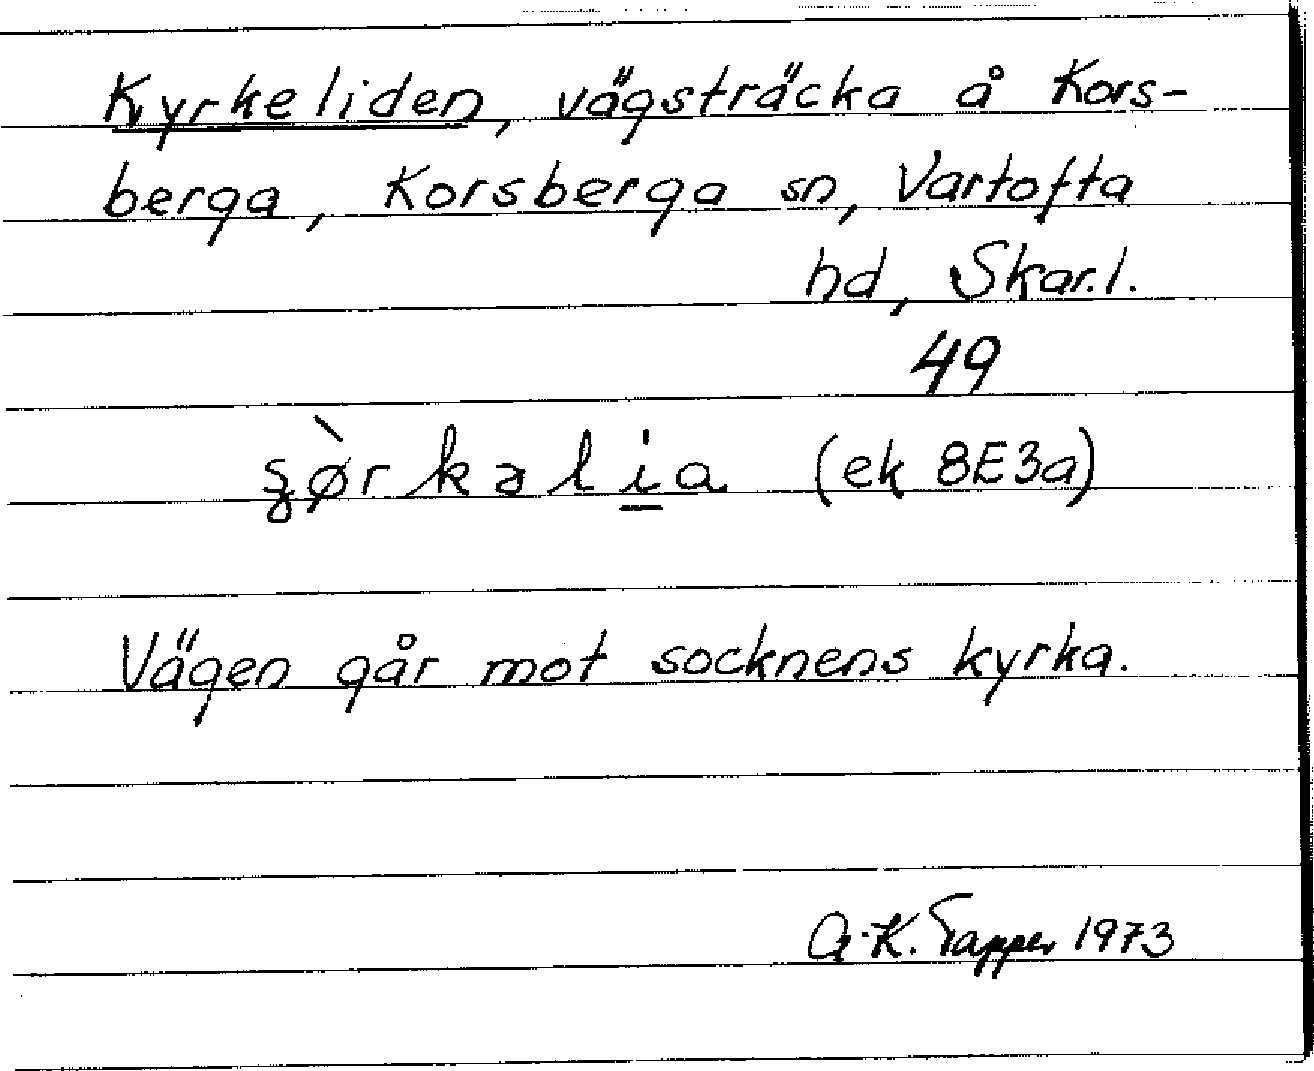 Kyrkeliden, vägsträcka å Kors-
berga, Korsberga sn, Vartofta
hd, Skar.l.
49
(ek 8E3a)
Vägen går mot socknens kyrka.
A-K. Tapper 1973